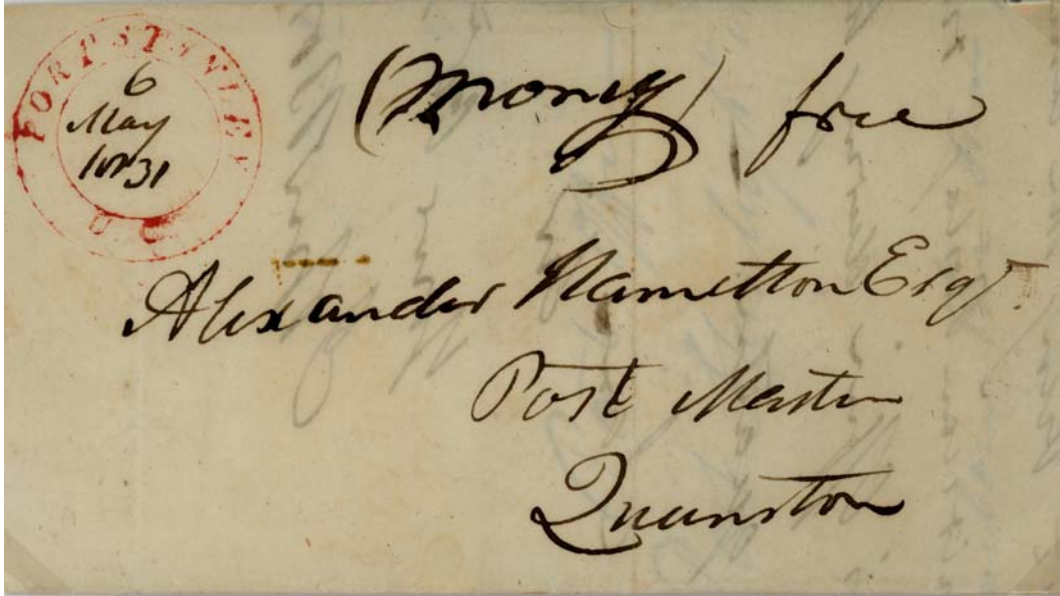 PORT STANLEY
6
May
1831
U C
(Money) free
Alexander Hamelton Esqr
Post Master
Queenston